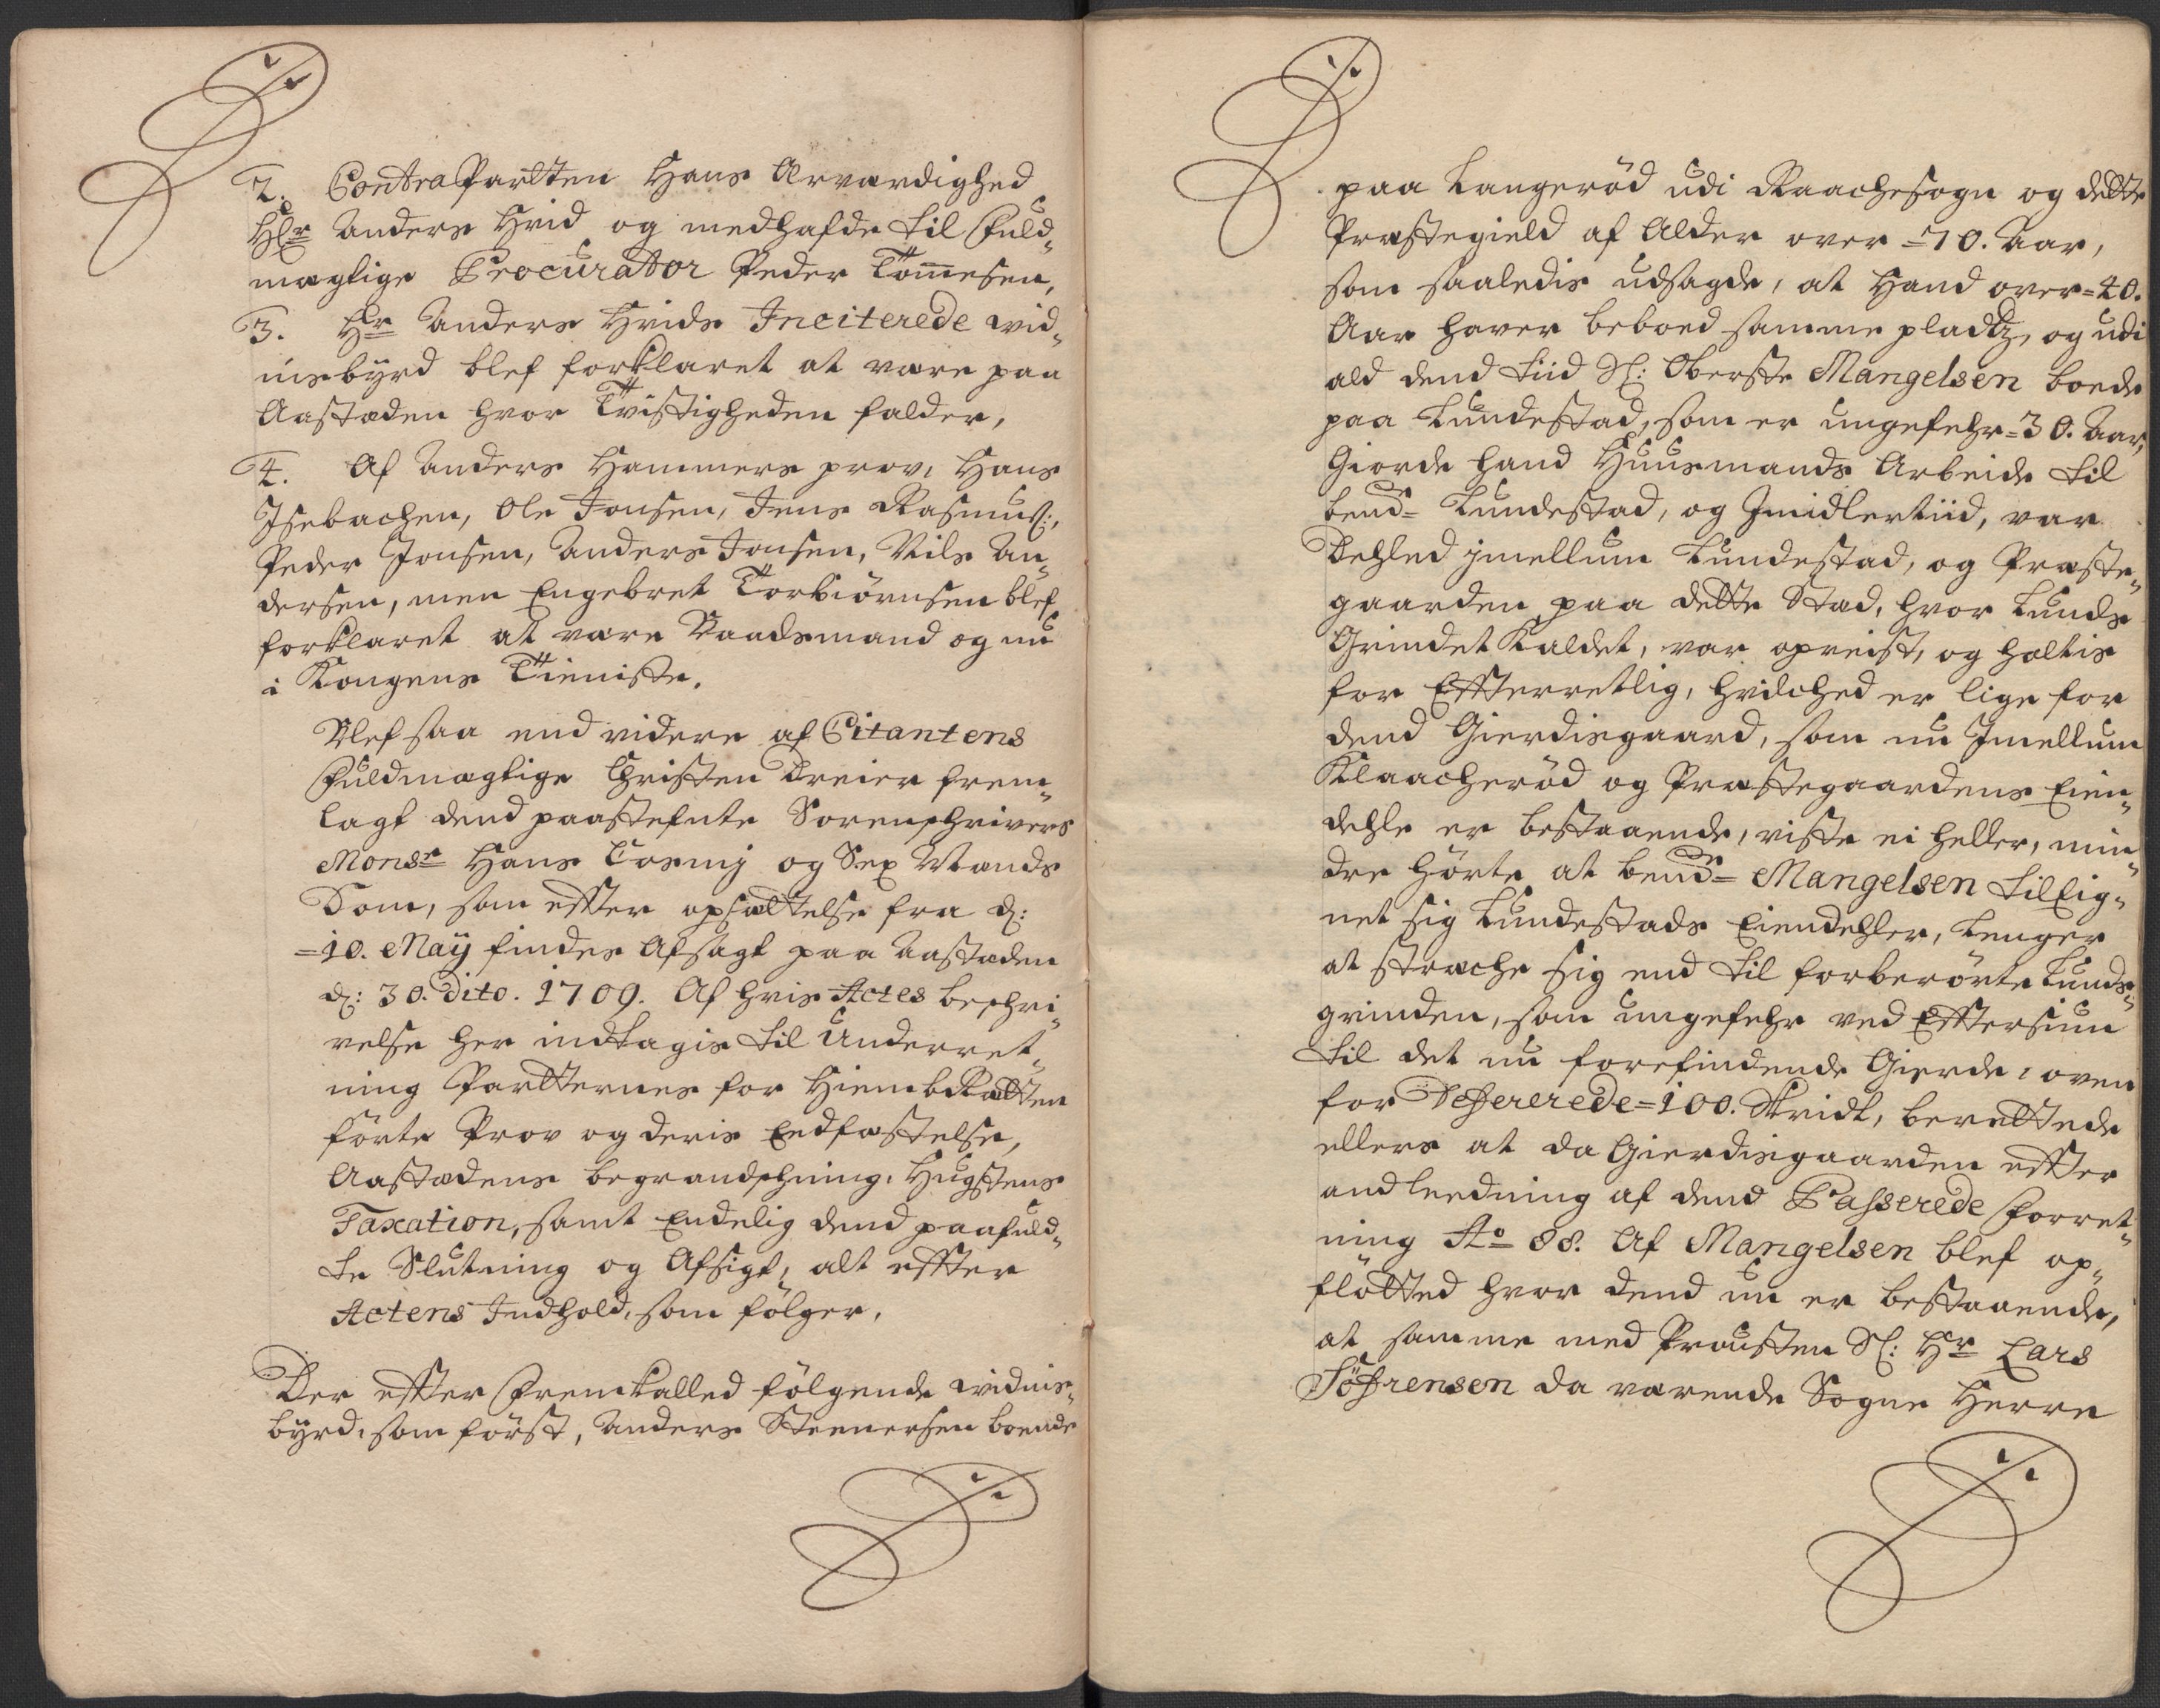 2. ContraPartten Hans Ærværdighed
Hr Anders Hvid og medhafde til Fuld¬
mægtige Procurator Peder Tommesen,
3. Hr Anders Hvids Inciterede vid¬
nisbyrd blef forklaret at være paa
Aastæden hvor Tvistigheden falder,
4. Af Anders Hammers prov, Hans
Isebachen, Ole Jonsen, Jens Rasmus:,
Peder Jonsen, Anders Jonsen, Nils An¬
dersen, men Engebret Torbiörnsen blef
forklaret at være Baadsmand og nu
i Kongens Tieniste.
Blef saa end videre af Citantens
Fuldmægtige Christen Dreier frem¬
lagt dend paastefnte Sorenschrivers
Monsr Hans Tosmij og Sex Mands
Dom, som effter opsættelse fra d:
=10. Maij findes Afsagt paa Aastæden
d: 30. dito. 1709. Af hvis Actes beschri¬
velse her indtagis til Underret¬
ning Partternes for HiembRætten
förte Prov og deris Eedfæstelse,
Aastædens begrandschning, Hugstens
Taxation, samt Endelig dend paafuld¬
te Slutning og Afsigt, alt effter
Actens Indhold, som fölger.
Der effter Fremkalled fölgende vidnis¬
byrd, som först, Anders Steenersen boende
paa Langeröd udi Raachesogn og dette
Præstegield af Alder over =70. Aar,
som saaledis udsagde, at Hand over=40.
Aar haver beboed samme pladtz, og udi
ald dend tiid Sl: Oberste Mangelsen boede
paa Lundestad, som er ungefehr=30. Aar,
Giorde hand Huusmands Arbeide til
bemte= Lundestad, og Imidlertiid, var
Dehled jmellum Lundestad, og Præste¬
gaarden paa dette Stæd, hvor Lunds
Grindet Kaldet, var opreist, og holtis
for Effterretlig, hvilched er lige for
dend Gierdisgaard, som nu Imellum
Klaacheröd og Præstegaardens Eien¬
dehle er bestaaende, viste ei heller, min¬
dre hörte at bemte= Mangelsen tilEig¬
net sig Lundestads Eiendehler, lenger
at streche sig end til forberörte Lunds¬
grinden, som ungefehr ved Efftersiun
til det nu forefindende Gierde, oven
for Defererede=100. Skridt, berettede
ellers at da Gierdisgaarden effter
andleedning af dend Passerede Forret¬
ning Ao 88. Af Mangelsen blef op¬
flötted hvor dend nu er bestaaende,
at samme med Prousten Sl: Hr Lars
Söfrensen da værende Sogne Herre